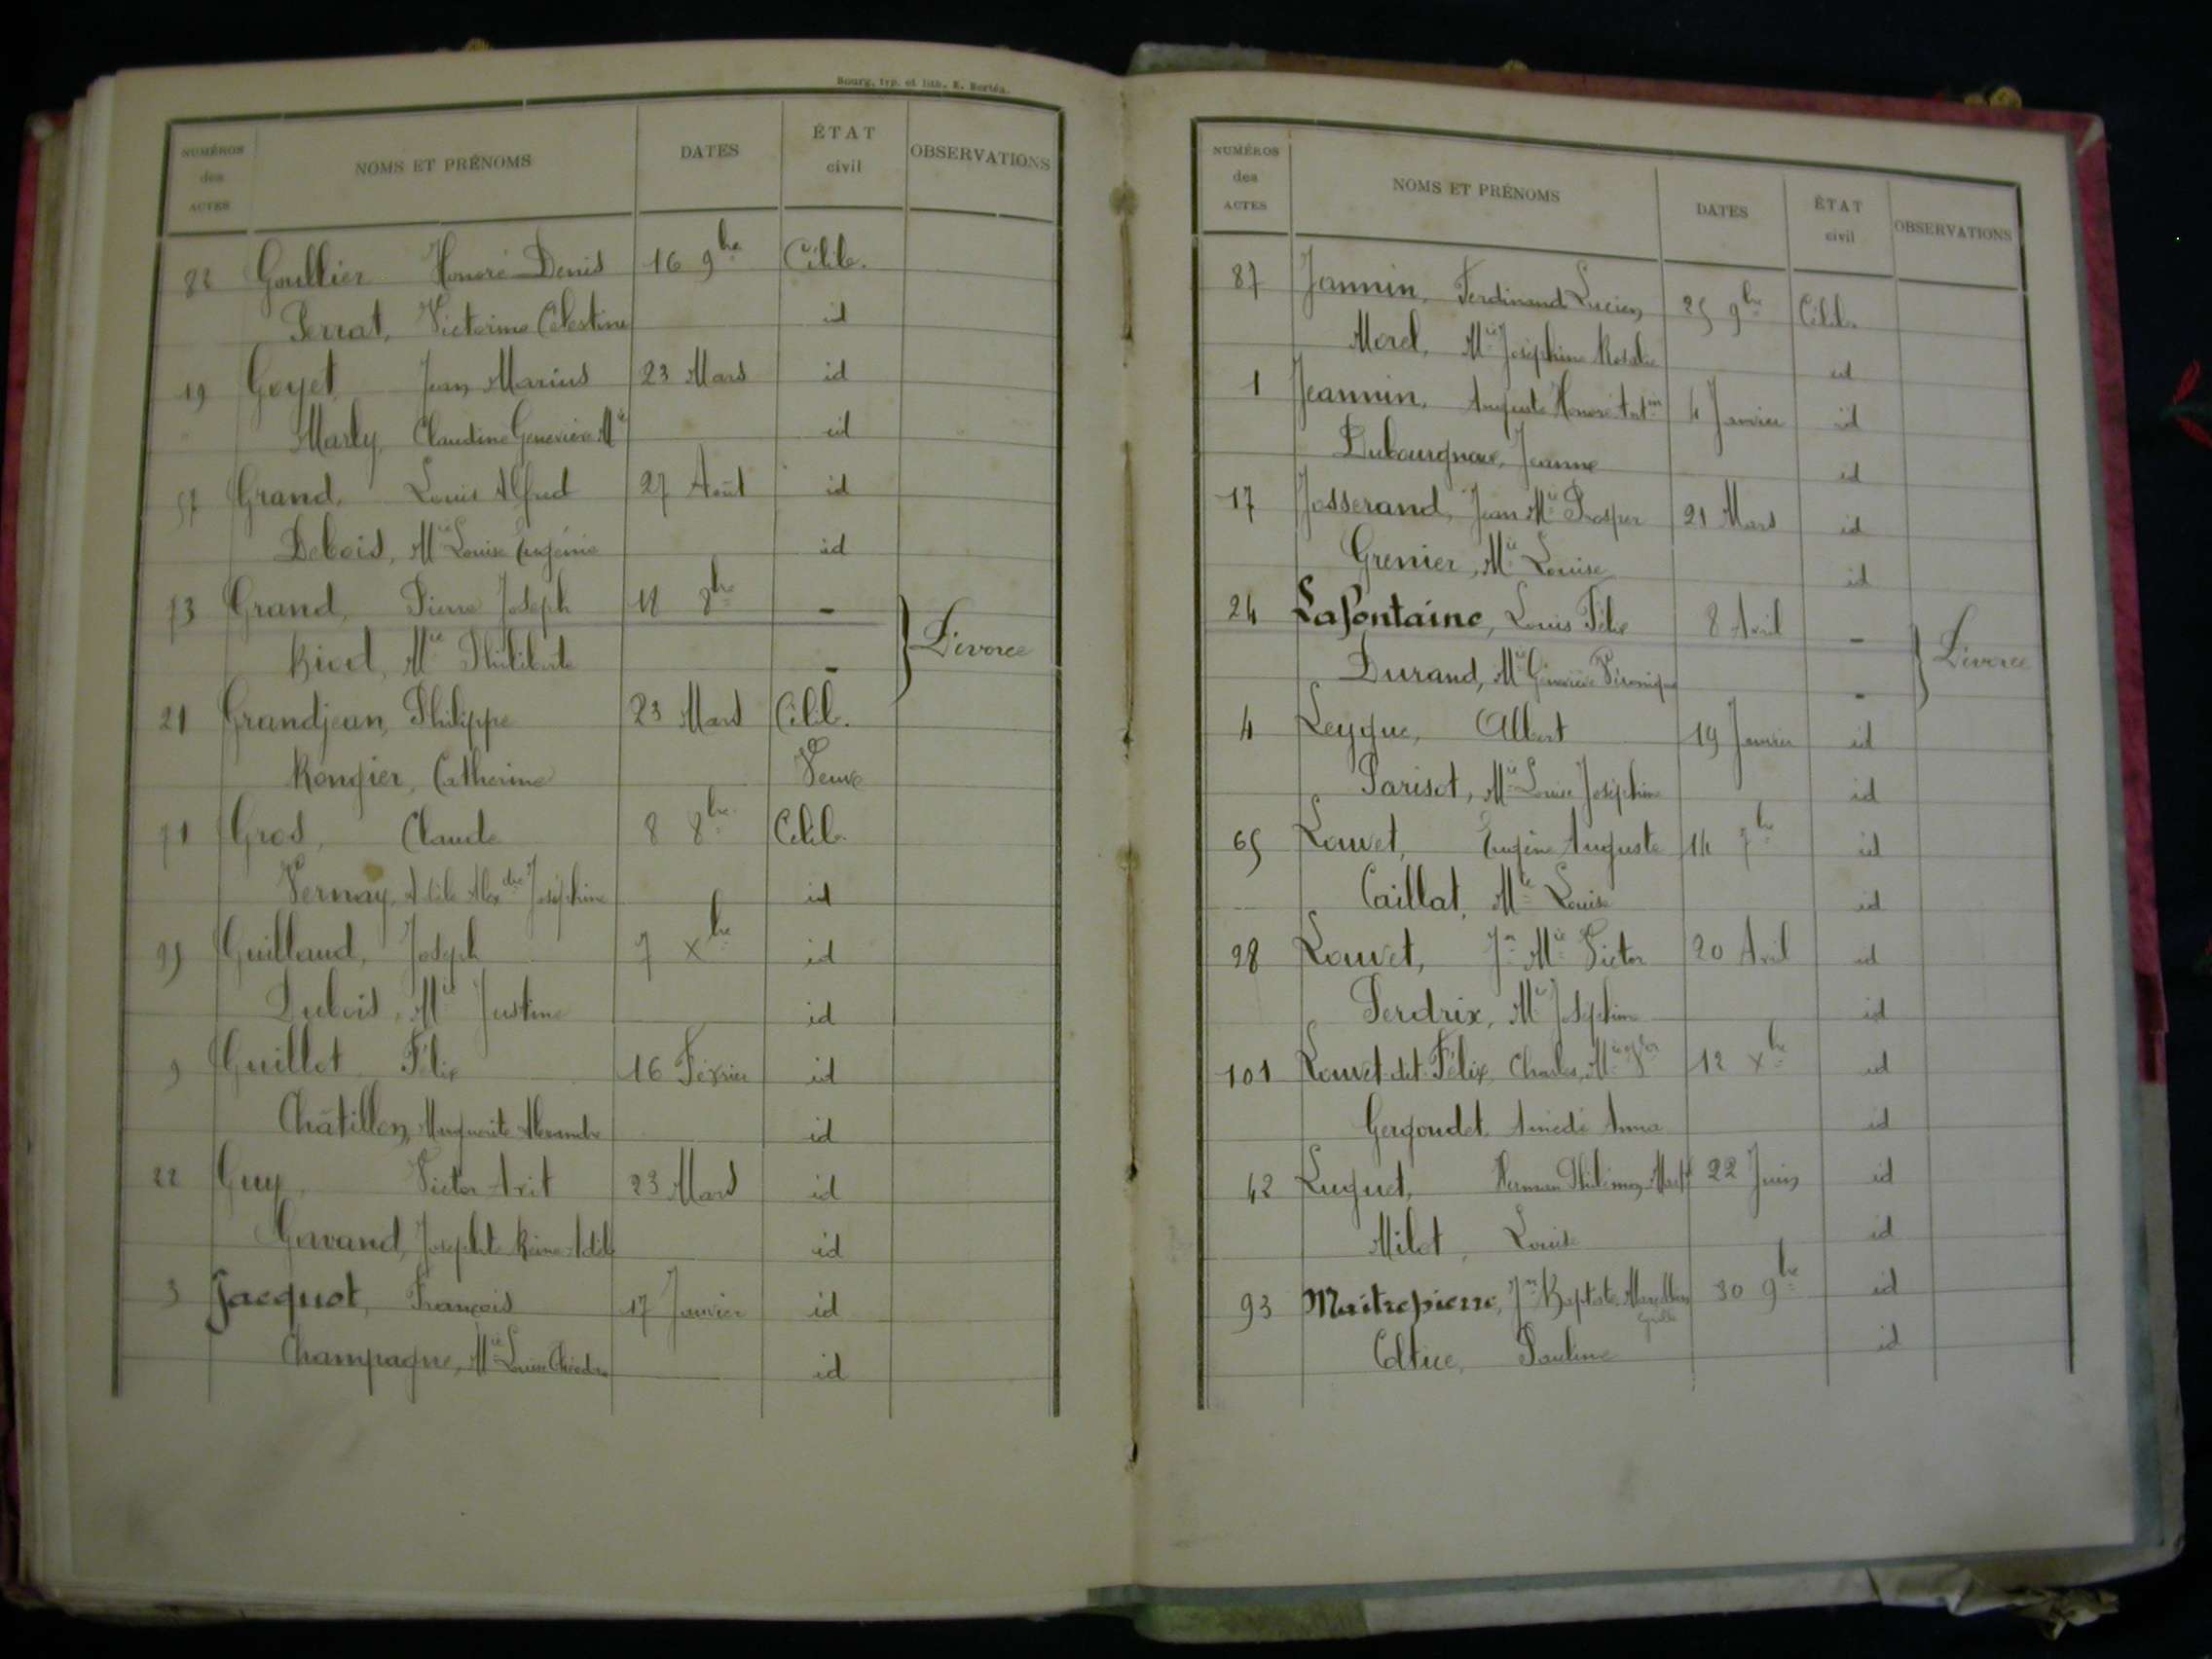 Bourg, typ. et lith. E. Bertéa.
NUMÉROS des ACTES NOMS ET PRÉNOMS DATES ÉTAT civil OBSERVATIONS
82 Goullier Honoré Denis 16 9bre Célib.
Perrat, Victorine Célestine id
19 Goyet Jean Marius 23 Mars id
Marly, Claudine Geneviève Mie id
57 Grand, Louis Alfred 27 Août id
Debois, Mie Louise Eugénie id
73 Grand, Pierre Joseph 11 8bre -
Riod, Mie Philiberte - } Divorce
21 Grandjean, Philippe 23 Mars Célib.
Rongier, Catherine Veuve
71 Gros, Claude 8 8bre Célib.
Vernay, Adèle Alexdre Joséphine id
95 Guillaud, Joseph 7 Xbre id
Dubois, Mie Justine id
9 Guillot Félix 16 Février id
Châtillon, Marguerite Alexandre id
22 Guy, Victor Avit 23 Mars id
Gavand, Josephte Reine Adèle id
3 Jacquot, François 17 Janvier id
Champagne, Mie Louise id
NUMÉROS des ACTES NOMS ET PRÉNOMS DATES ÉTAT civil OBSERVATIONS
87 Jannin, Ferdinand Lucien 25 9bre Célib.
Morel, Mie Joséphine Rosalie id
1 Jeannin, Auguste Honoré 4 Janvier id
Dubourgnoux, Jeanne id
17 Josserand, Jean Mie Prosper 21 Mars id
Grenier, Mie Louise id
24 Lafontaine, Louis Félix 8 Avril -
Durand, Mie Geneviève Véronique - } Divorce
4 Leygue, Albert 19 Janvier id
Parisot, Mie Louise Joséphine id
65 Louvet, Eugène Auguste 14 7bre id
Caillat, Mie Louise id
28 Louvet, Jn Mie Victor 20 Avril id
Perdrix, Mie Joséphine id
101 Louvet dit Félix, Charles, Mie 12 Xbre id
Gergondet, Amédé Anna id
42 Luquet, Herman Philémon 22 Juin id
Milot, Louise id
93 Maitrepierre, Jn Baptiste Marcellin 30 9bre id
Coltice, Pauline id